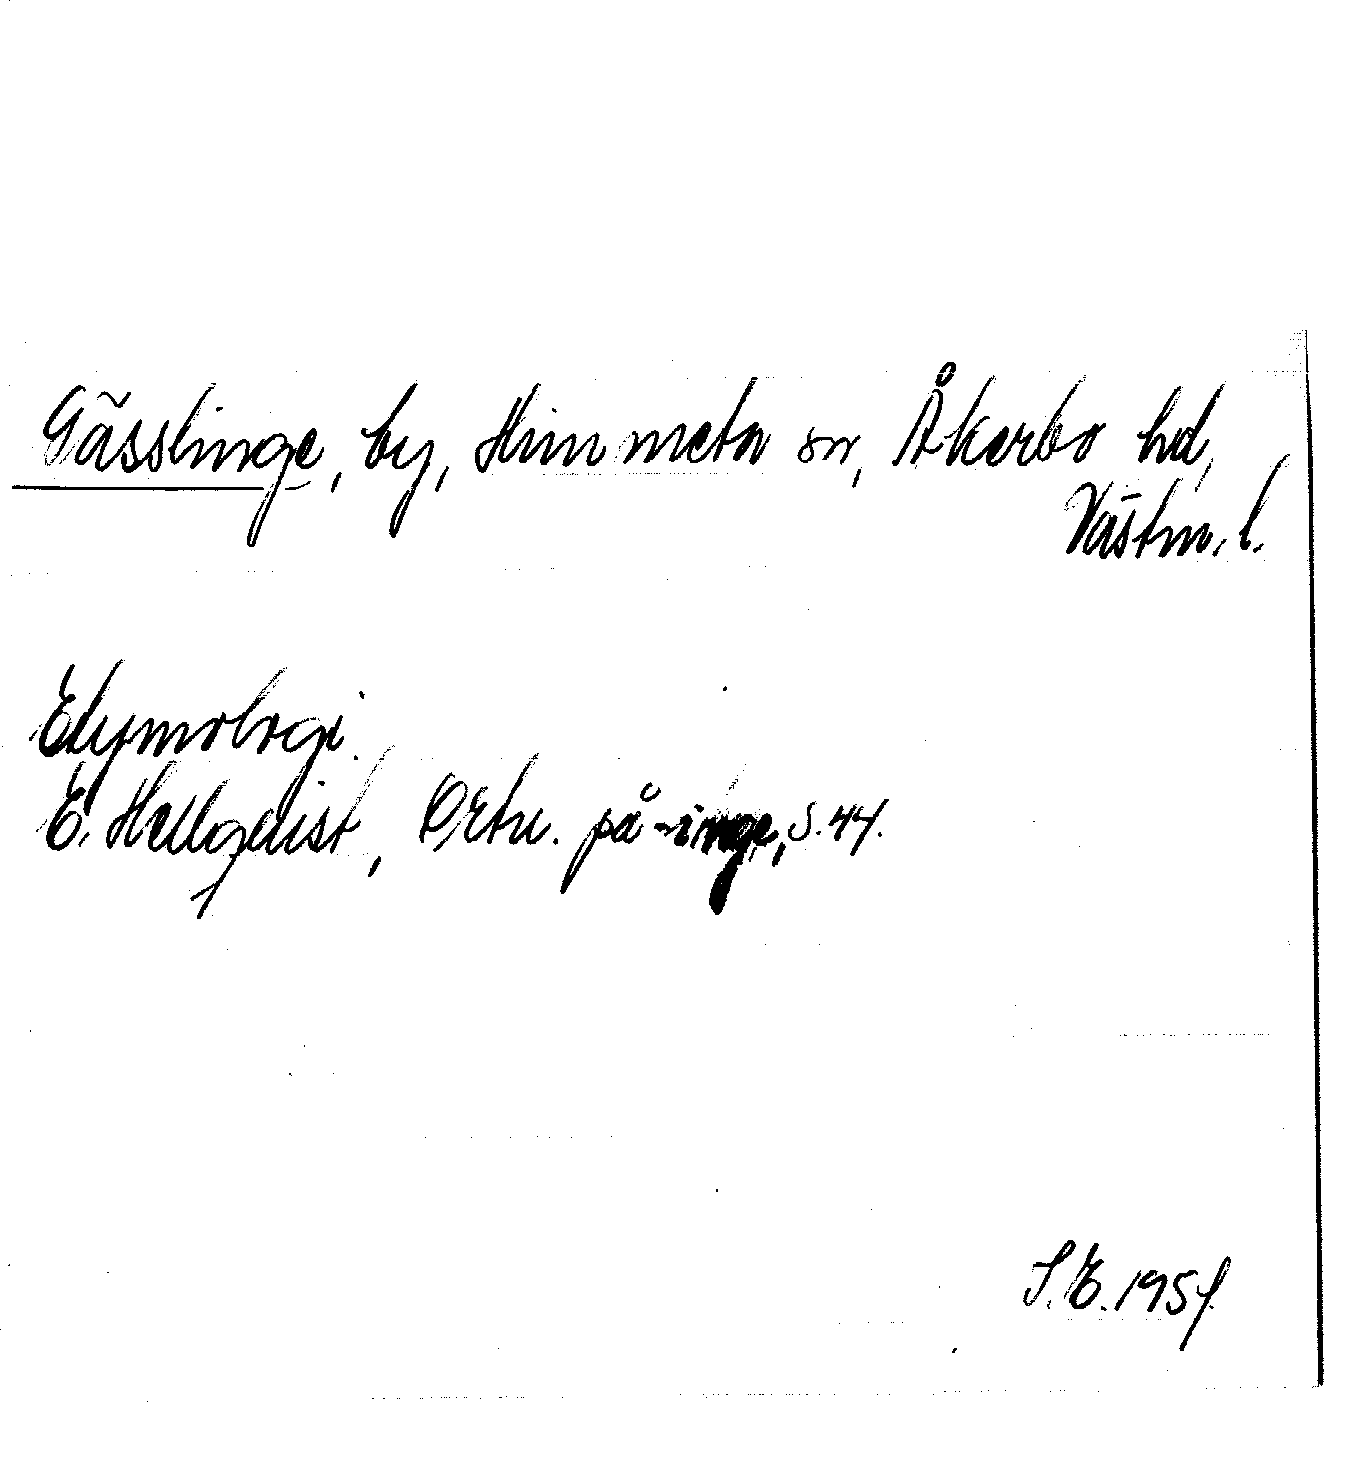 Gässlinge, by, Himmeta sn, Åkerbo hd,
Västm. l.
Etymologi.
E. Hellquist, Ortn. på -inge, s. 44.
S. E. 1951.